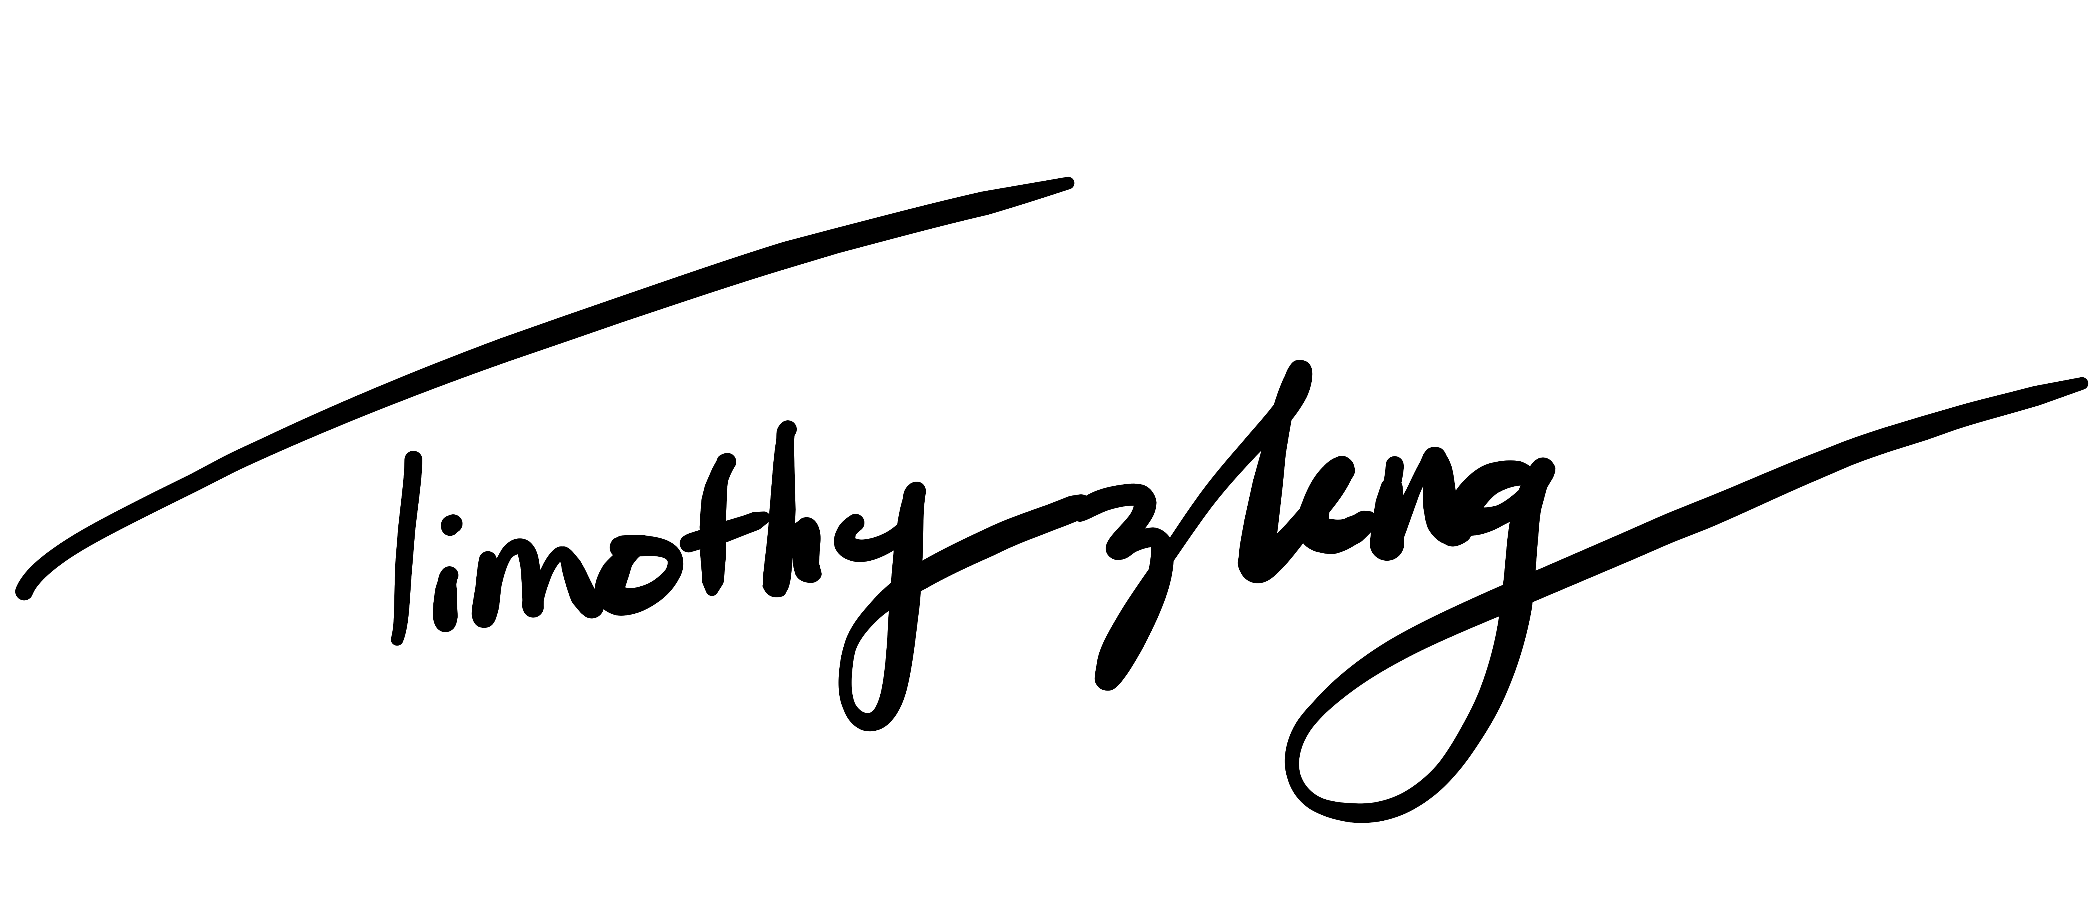 Timothy Zheng